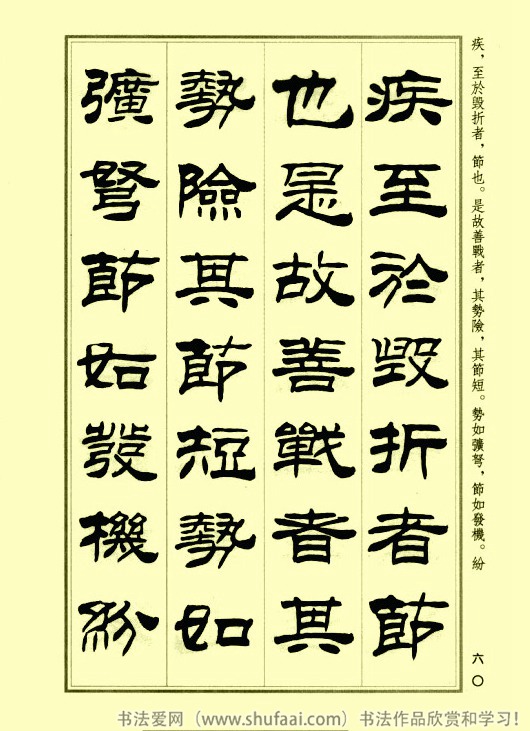 疾，至於毀折者，節也。是故善戰者，其勢險，其節短。勢如彍弩，節如發機。紛
疾至於毀折者節
也是故善戰者其
勢險其節短勢如
彍弩節如發機紛
六〇
书法爱网（www.shufaai.com）书法作品欣赏和学习！